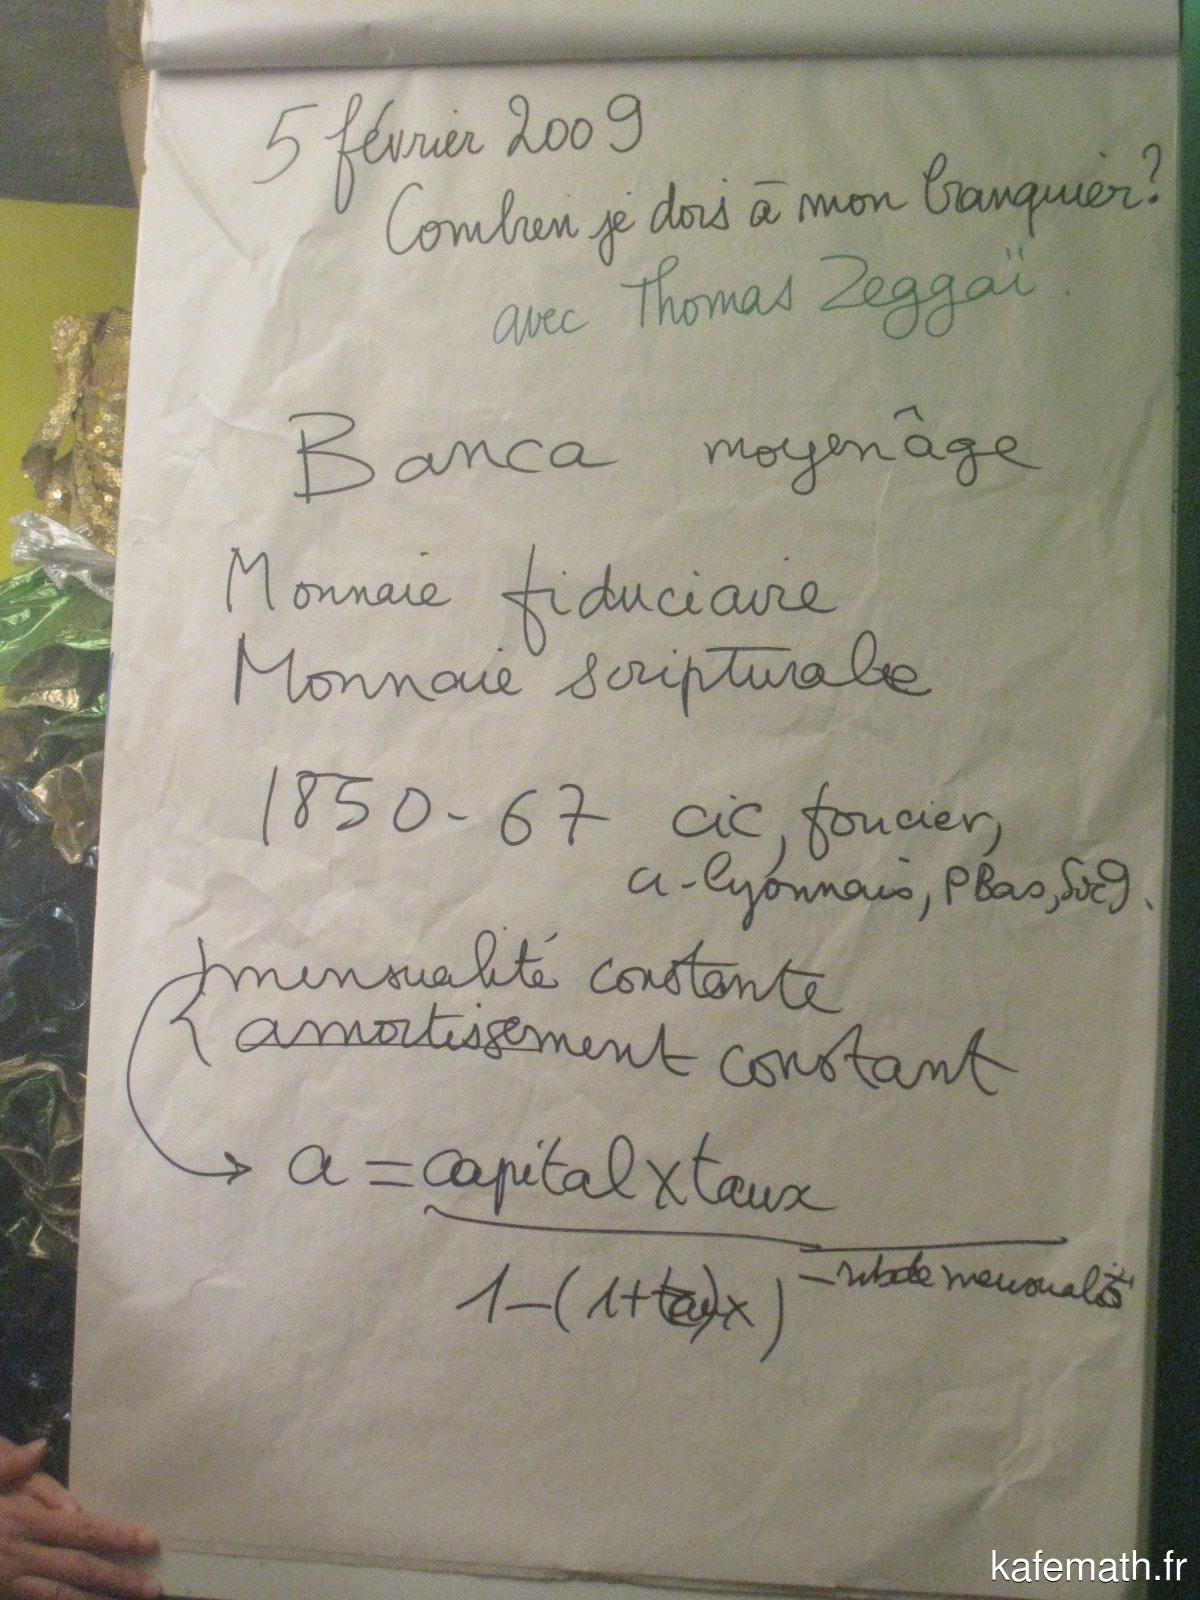 5 février 2009
Combien je dois à mon banquier?
avec Thomas Zeggaï
Banca moyen âge
Monnaie fiduciaire
Monnaie scripturale
1850-67 cic, foncier,
cr-lyonnais, PBas, Socg.
mensualité constante
amortissement constant
a = capital x taux
1-(1+taux) - nb de mensualités
kafemath.fr